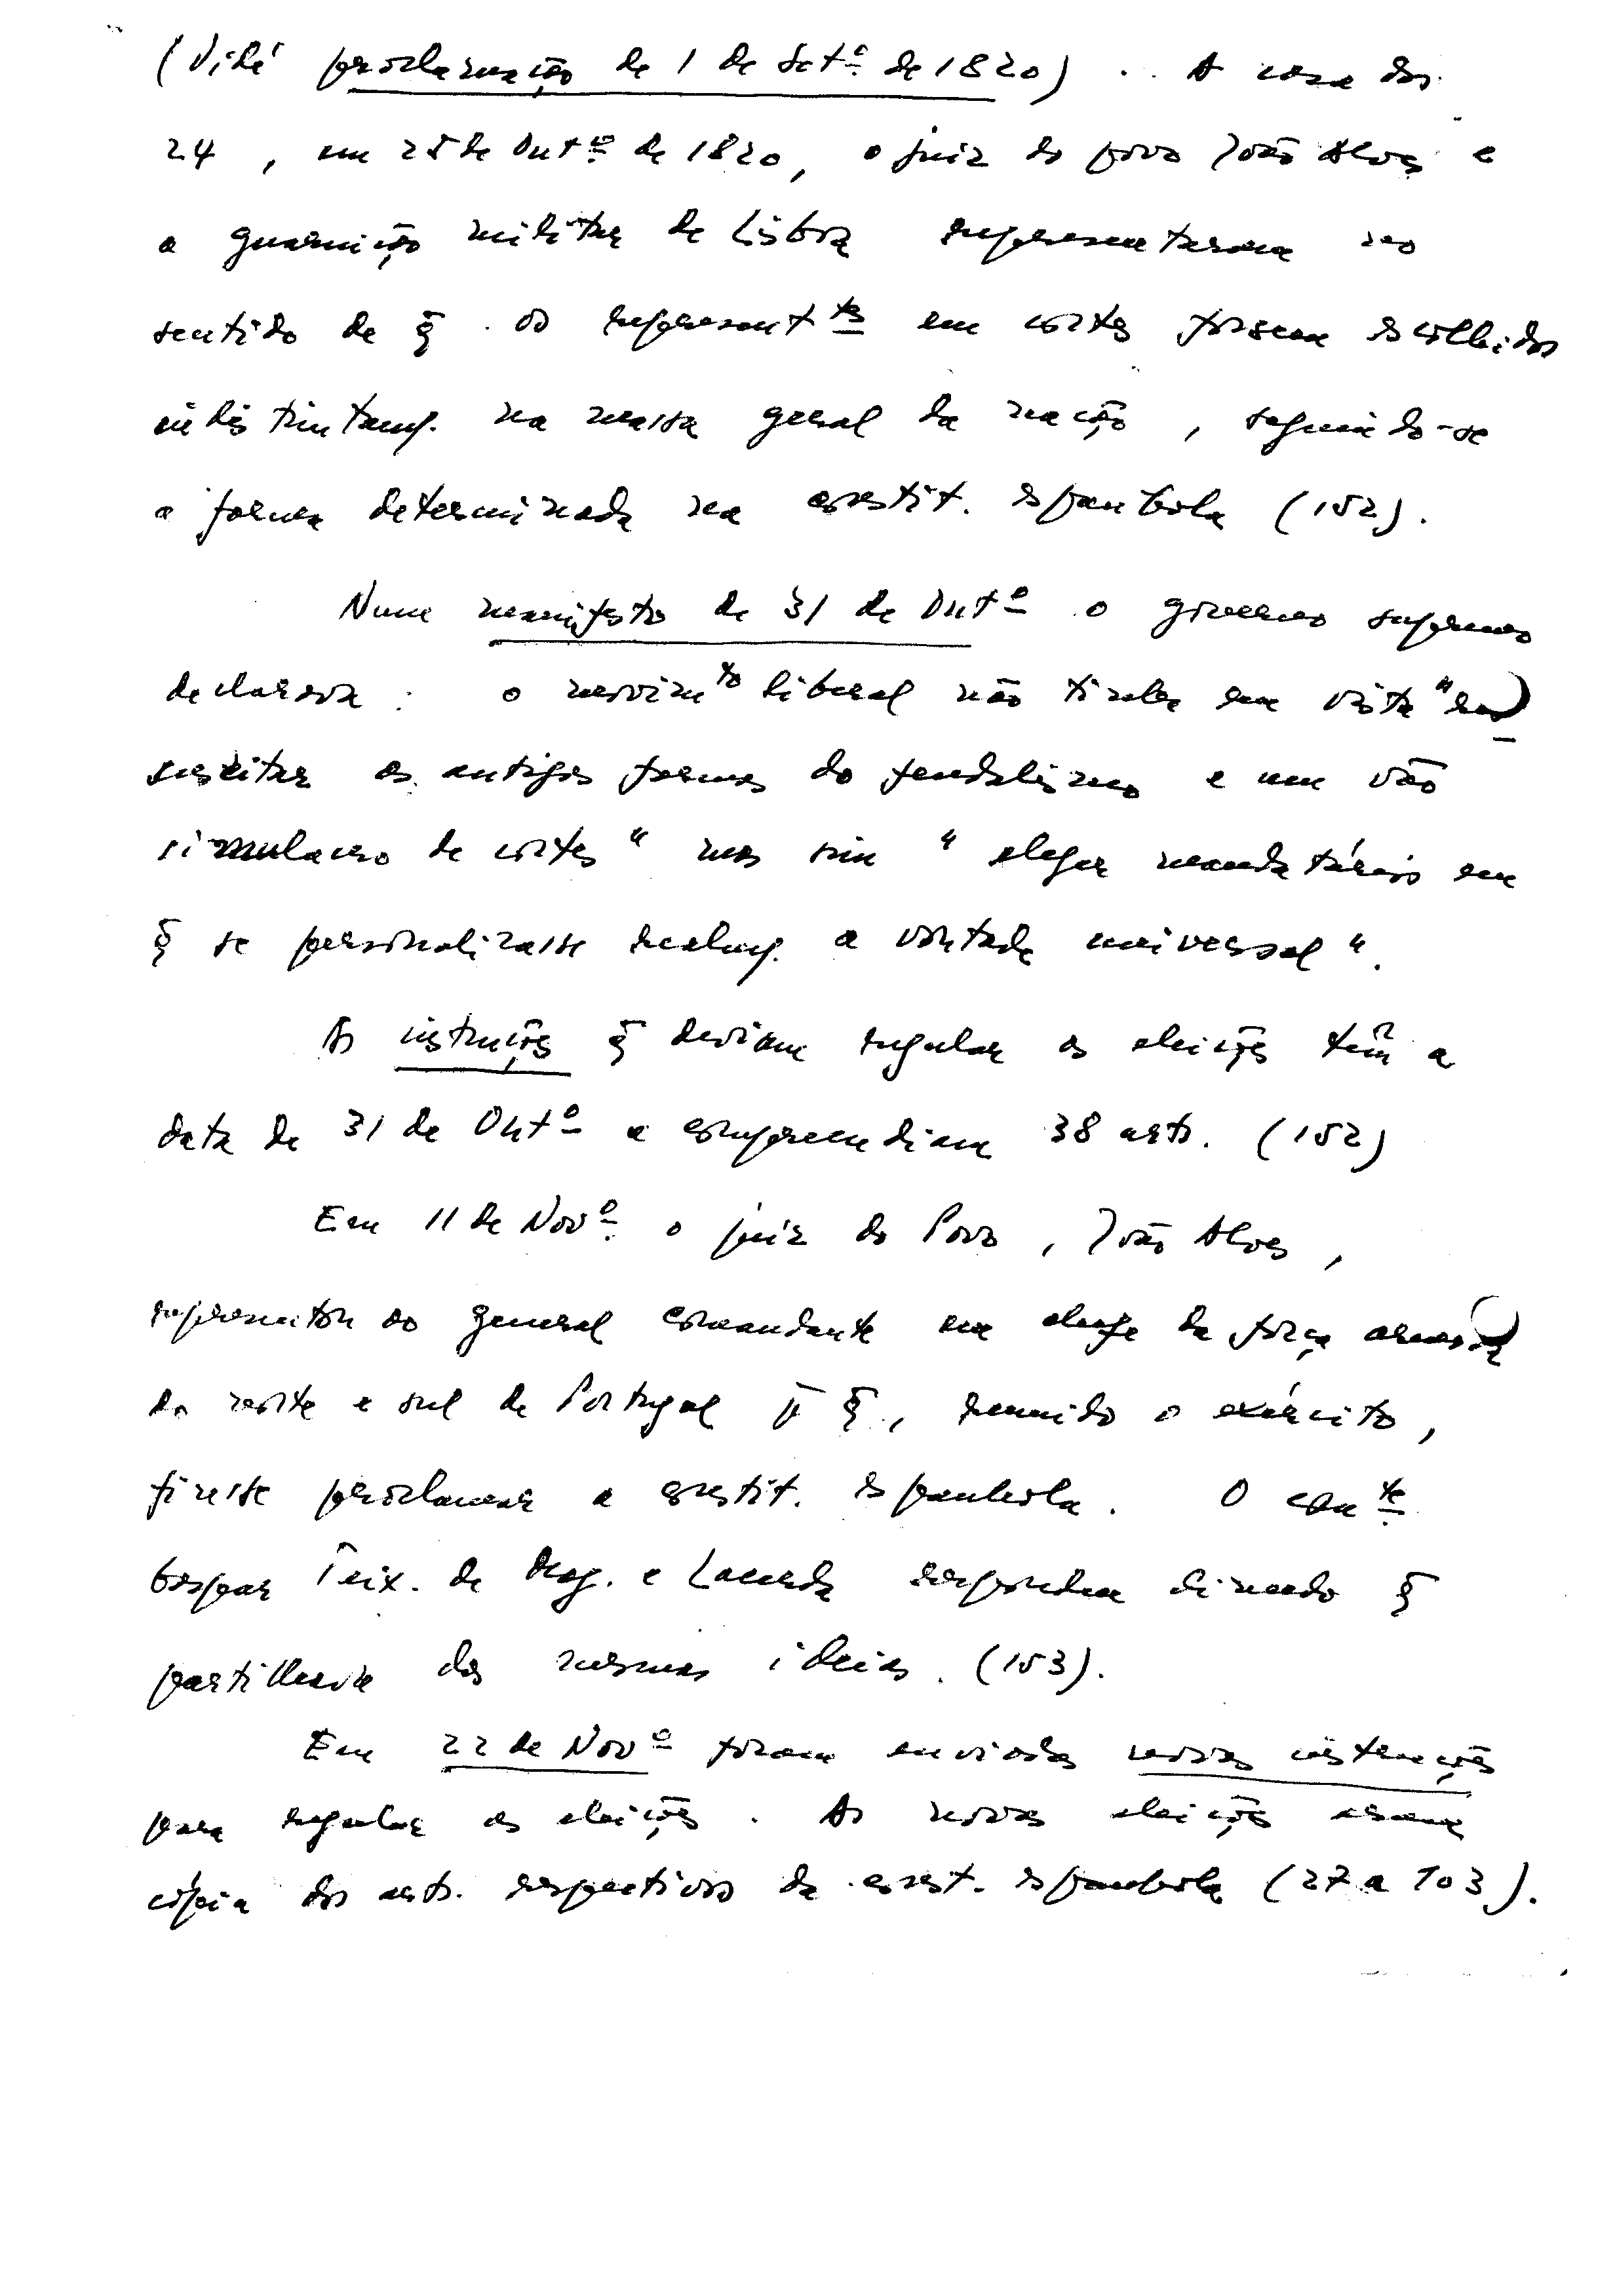 (Vidé proclamação de 1 de Setº de 1820). A casa dos
24, em 25 de Outº de 1820, o juiz do povo João Alves e
a guarnição militar de Lisboa representaram no
sentido de q̃ os representtes em cortes fossem escolhidos
indistintamḡ. na massa geral da nação, seguindo-se
a forma determinada na constit. espanhola (152).
Num manifesto de 31 de Outº o governo supremo
declarava: o movimto liberal não tinha em vista "res
suscitar as antigas formas do feudalismo e um vão
simulacro de cortes" mas sim "eleger mandatários em
q̃ se personalizasse realmḡ. a vontade universal".
As instruções q̃ deviam regular as eleições têm a
data de 31 de Outº e compreendiam 38 arts. (152)
Em 11 de Novº o juiz do Povo, João Alves,
representou ao general comandante em chefe da força armada
do norte e sul de Portugal p̄ q̃, reunido o exército,
fizesse proclamar a constit. espanhola. O comte
Gaspar Teix. de Mag. e Lacerda respondeu dizendo q̃
partilhava das mesmas ideias. (153).
Em 22 de Novº foram enviadas novas instruções
para regular as eleições. As novas eleições eram
cópia dos arts. respectivos da const. espanhola (27 a 103).